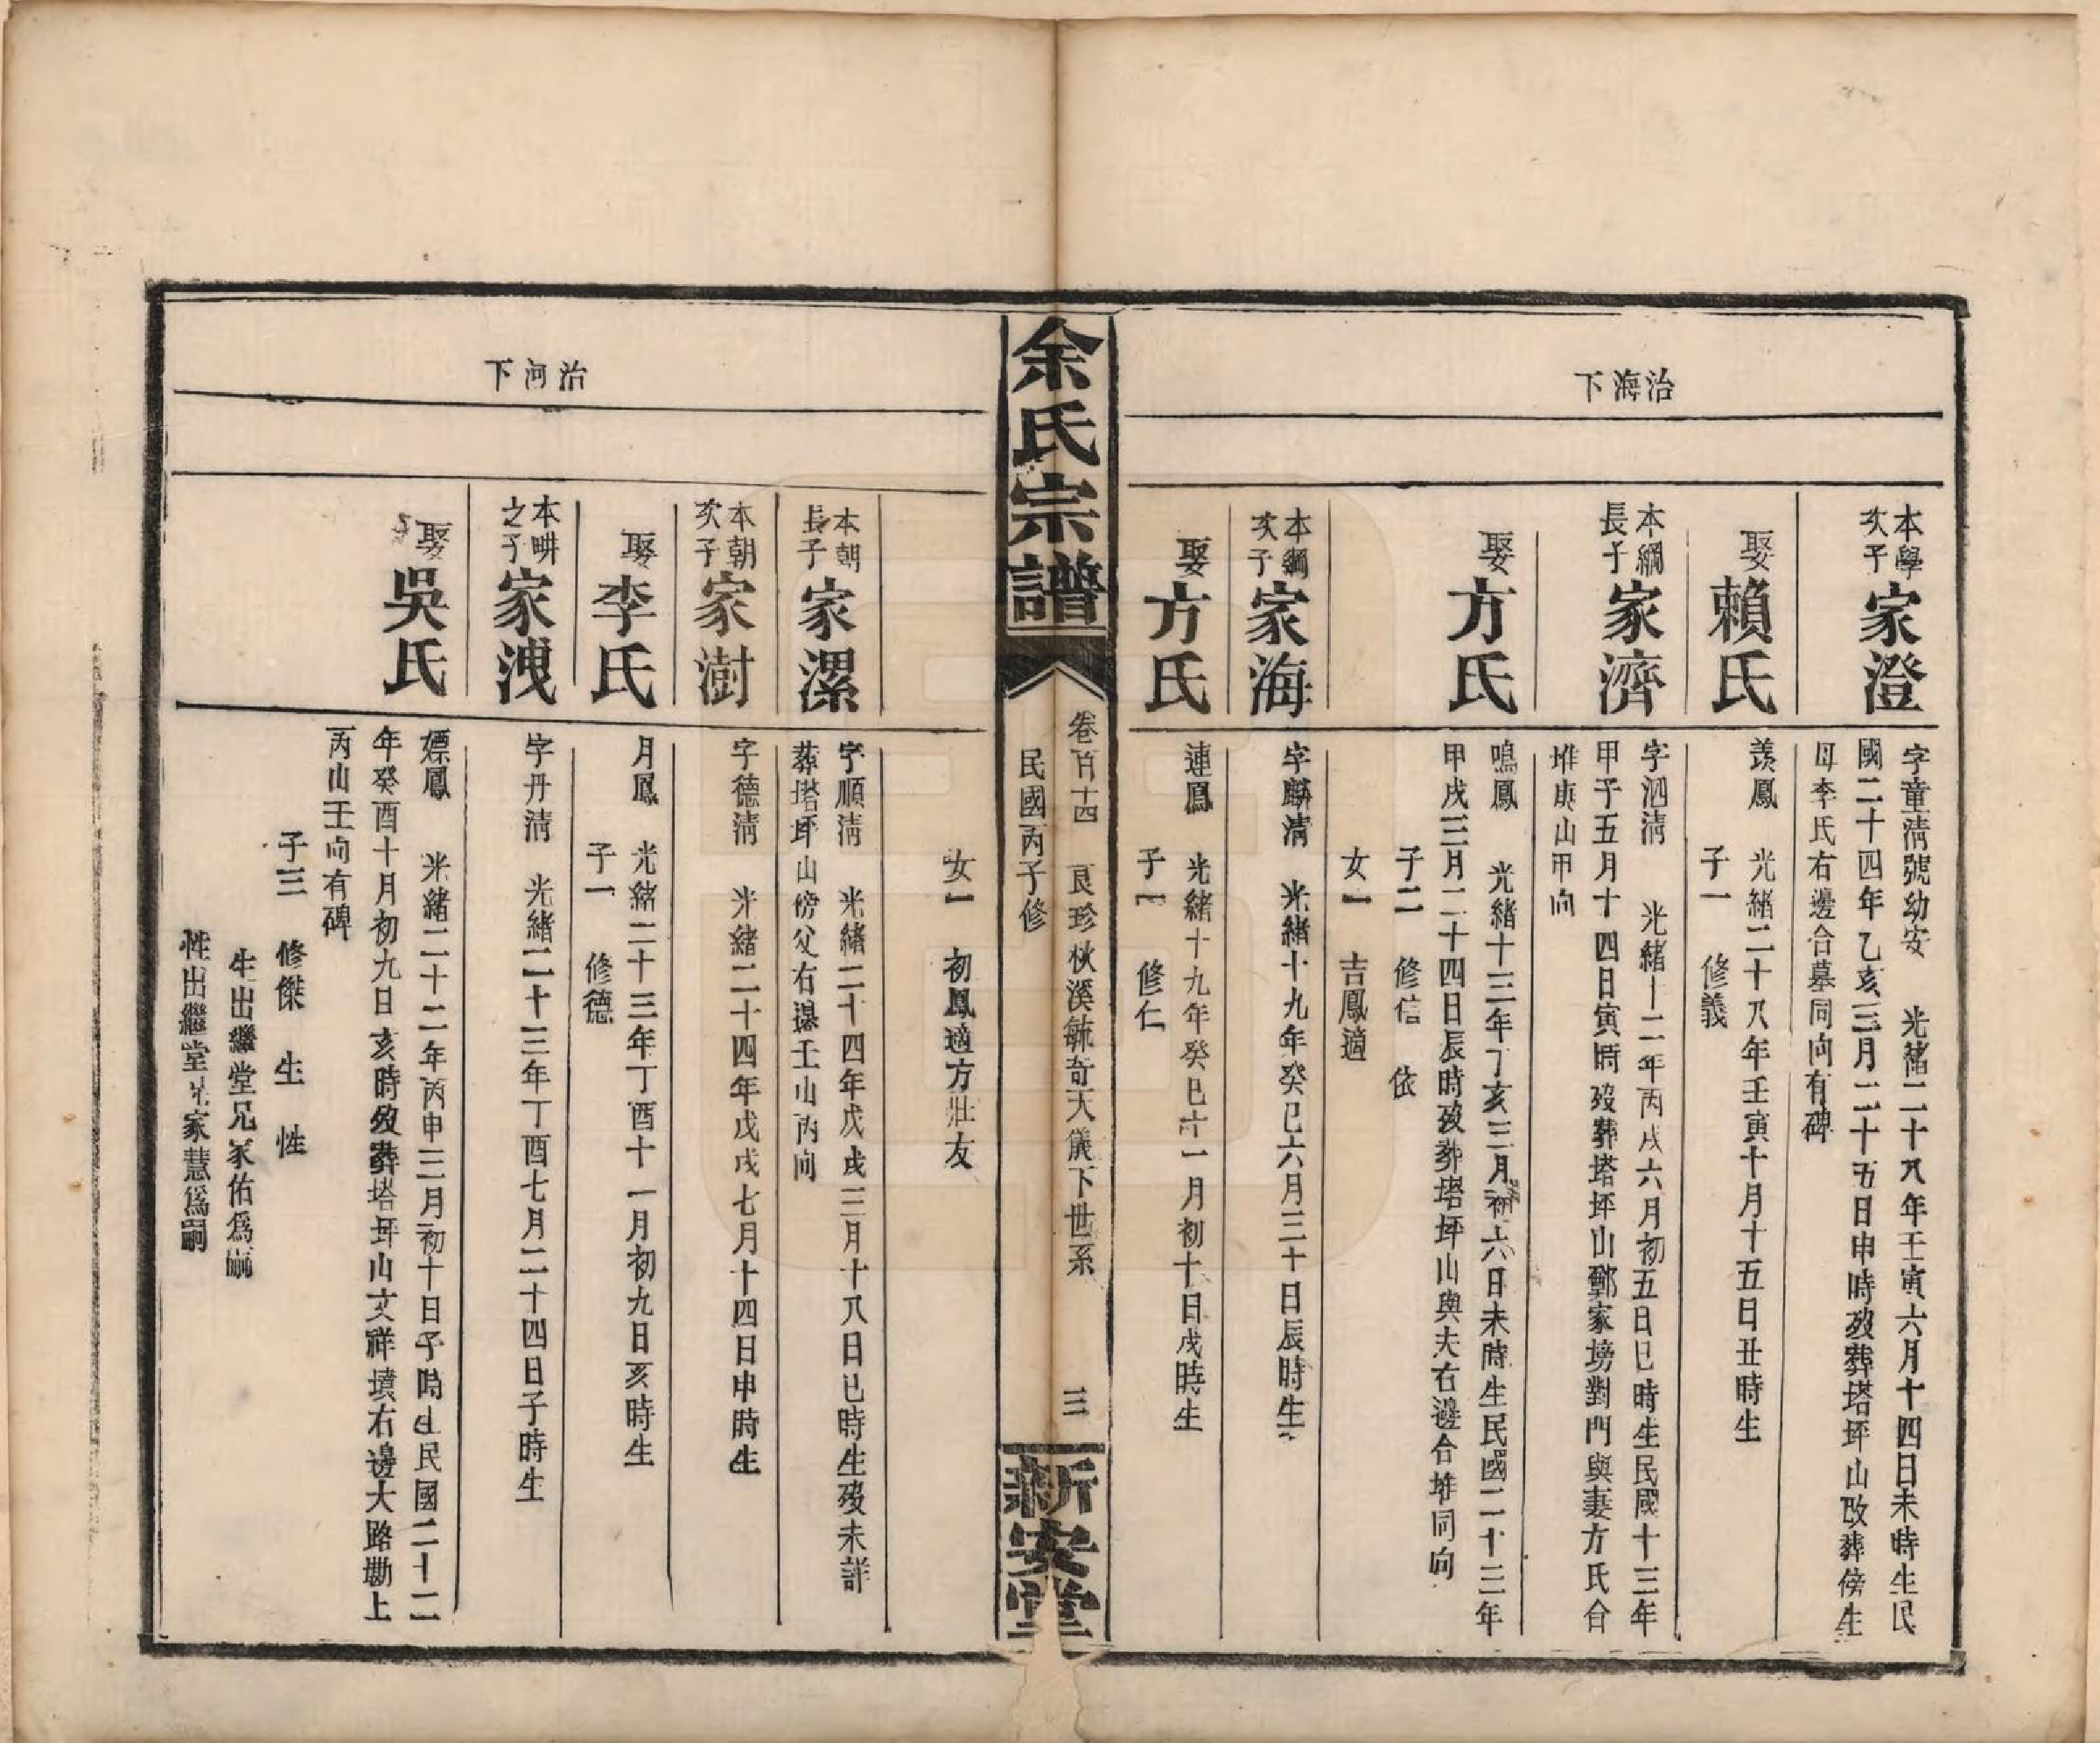 治海下
本學次子
家澄
字童淸號幼安 光緒二十八年壬寅六月十四日未時生民
國二十四年乙亥三月二十五日申時歿葬塔坪山改葬傍生
母李氏右邊合墓同向有碑
娶賴氏
羨鳳 光緒二十八年壬寅十月十五日丑時生
子一 修義
本綱長子
家濟
字泗淸 光緒十二年丙戌六月初五日巳時生民國十三年
甲子五月十四日寅時歿葬塔坪山鄭家塝對門與妻方氏合
堆庚山甲向
娶方氏
鳴鳳 光緒十三年丁亥三月初六日未時生民國二十三年
甲戌三月二十四日辰時歿葬塔坪山與夫右邊合堆同向
子二 修信 依
女一 吉鳳適
本綱次子
家海
字麟淸 光緒十九年癸巳六月三十日辰時生
娶方氏
連鳳 光緒十九年癸巳十一月初十日戌時生
子一 修仁
余氏宗譜
卷百十四 良珍秋溪毓奇天儀下世系 三
民國丙子修
新安堂
治河下
女一 初鳳適方壯友
本朝長子
家漯
字順淸 光緒二十四年戊戌三月十八日巳時生歿未詳
葬塔坪山傍父右邊壬山丙向
本朝次子
家澍
字德淸 光緒二十四年戊戌七月十四日申時生
娶李氏
月鳳 光緒二十三年丁酉十一月初九日亥時生
子一 修德
本畊之子
家洩
字丹淸 光緒二十三年丁酉七月二十四日子時生
娶吳氏
嫖鳳 光緒二十二年丙申三月初十日子時生民國二十二
年癸酉十月初九日亥時歿葬塔坪山文祥墳右邊大路勘上
丙山壬向有碑
子三 修傑 生 性
生出繼堂兄家佑爲嗣
性出繼堂兄家慧爲嗣